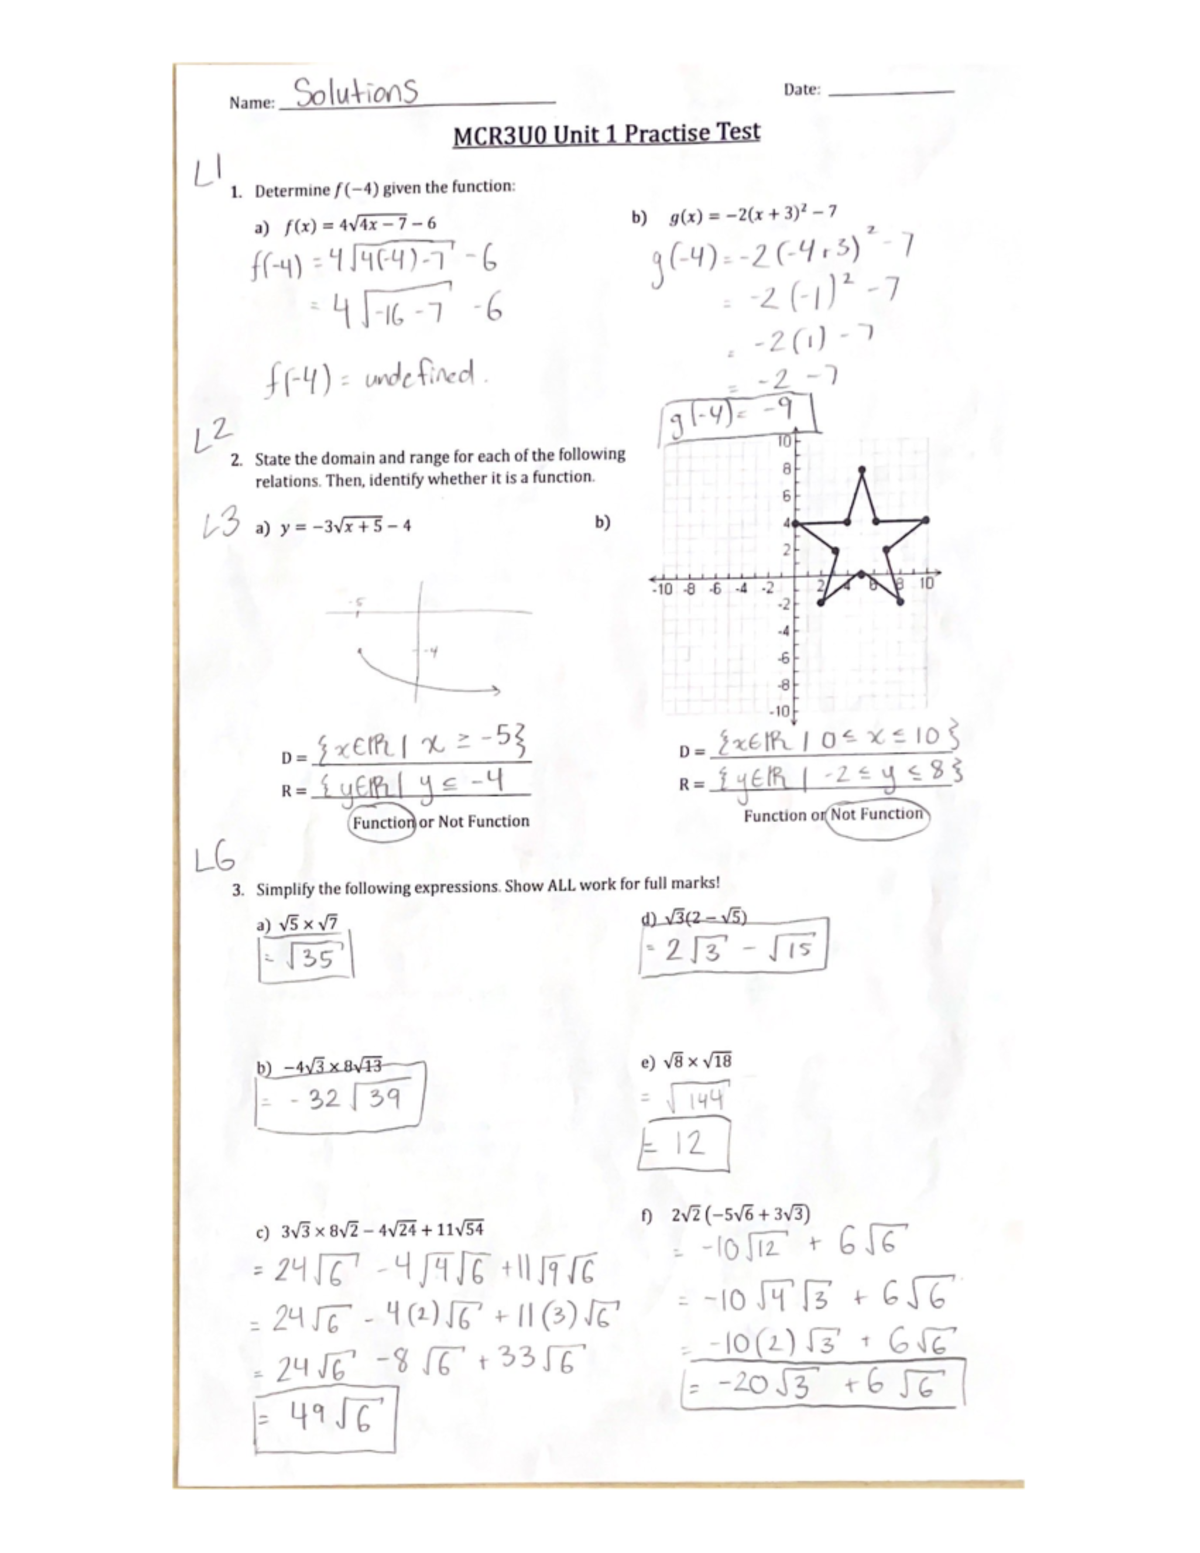 Name: Solutions
Date:
MCR3U0 Unit 1 Practise Test
L1
1. Determine f(−4) given the function:
a) f(x) = 4√(4x − 7) − 6
f(-4) = 4√(4(-4)-7) - 6
= 4√(-16-7) - 6
f(-4) = undefined.
b) g(x) = −2(x + 3)² − 7
g(-4) = -2(-4+3)² - 7
= -2(-1)² - 7
= -2(1) - 7
= -2 - 7
g(-4) = -9
L2
2. State the domain and range for each of the following
relations. Then, identify whether it is a function.
L3
a) y = −3√(x + 5) − 4
-5
-4
D = {x∈ℝ | x ≥ -5}
R = {y∈ℝ | y ≤ -4
Function or Not Function
b)
10
8
6
4
2
-10 -8 -6 -4 -2 2 4 6 8 10
-2
-4
-6
-8
-10
D = {x∈ℝ | 0 ≤ x ≤ 10}
R = {y∈ℝ | -2 ≤ y ≤ 8}
Function or Not Function
L6
3. Simplify the following expressions. Show ALL work for full marks!
a) √5 × √7
= √35
d) √3(2 − √5)
= 2√3 - √15
b) −4√3 × 8√13
= -32√39
e) √8 × √18
= √144
= 12
c) 3√3 × 8√2 − 4√24 + 11√54
= 24√6 - 4√4√6 + 11√9√6
= 24√6 - 4(2)√6 + 11(3)√6
= 24√6 - 8√6 + 33√6
= 49√6
f) 2√2(−5√6 + 3√3)
= -10√12 + 6√6
= -10√4√3 + 6√6
= -10(2)√3 + 6√6
= -20√3 + 6√6